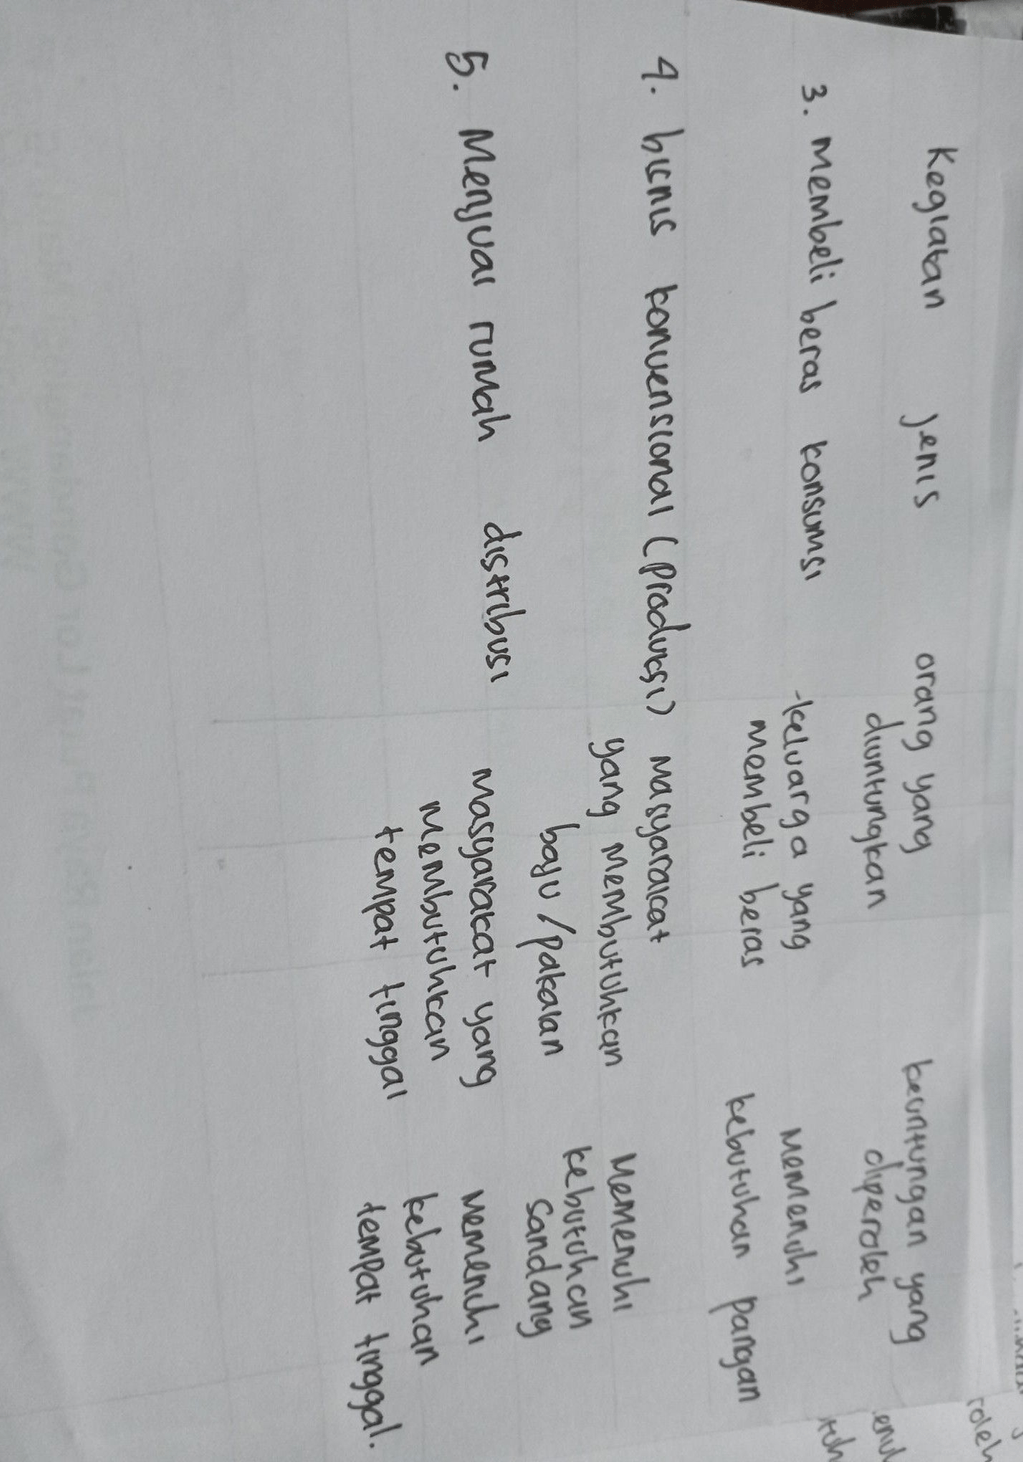 Kegiatan jenis orang yang keuntungan yang
diuntungkan diperoleh
3. membeli beras konsumsi -keluarga yang memenuhi
membeli beras kebutuhan pangan
4. bisnis konvensional (produksi) masyarakat memenuhi
yang membutuhkan kebutuhan
baju/pakaian sandang
5. Menjual rumah distribusi masyarakat yang memenuhi
membutuhkan kebutuhan
tempat tinggal tempat tinggal.
roleh